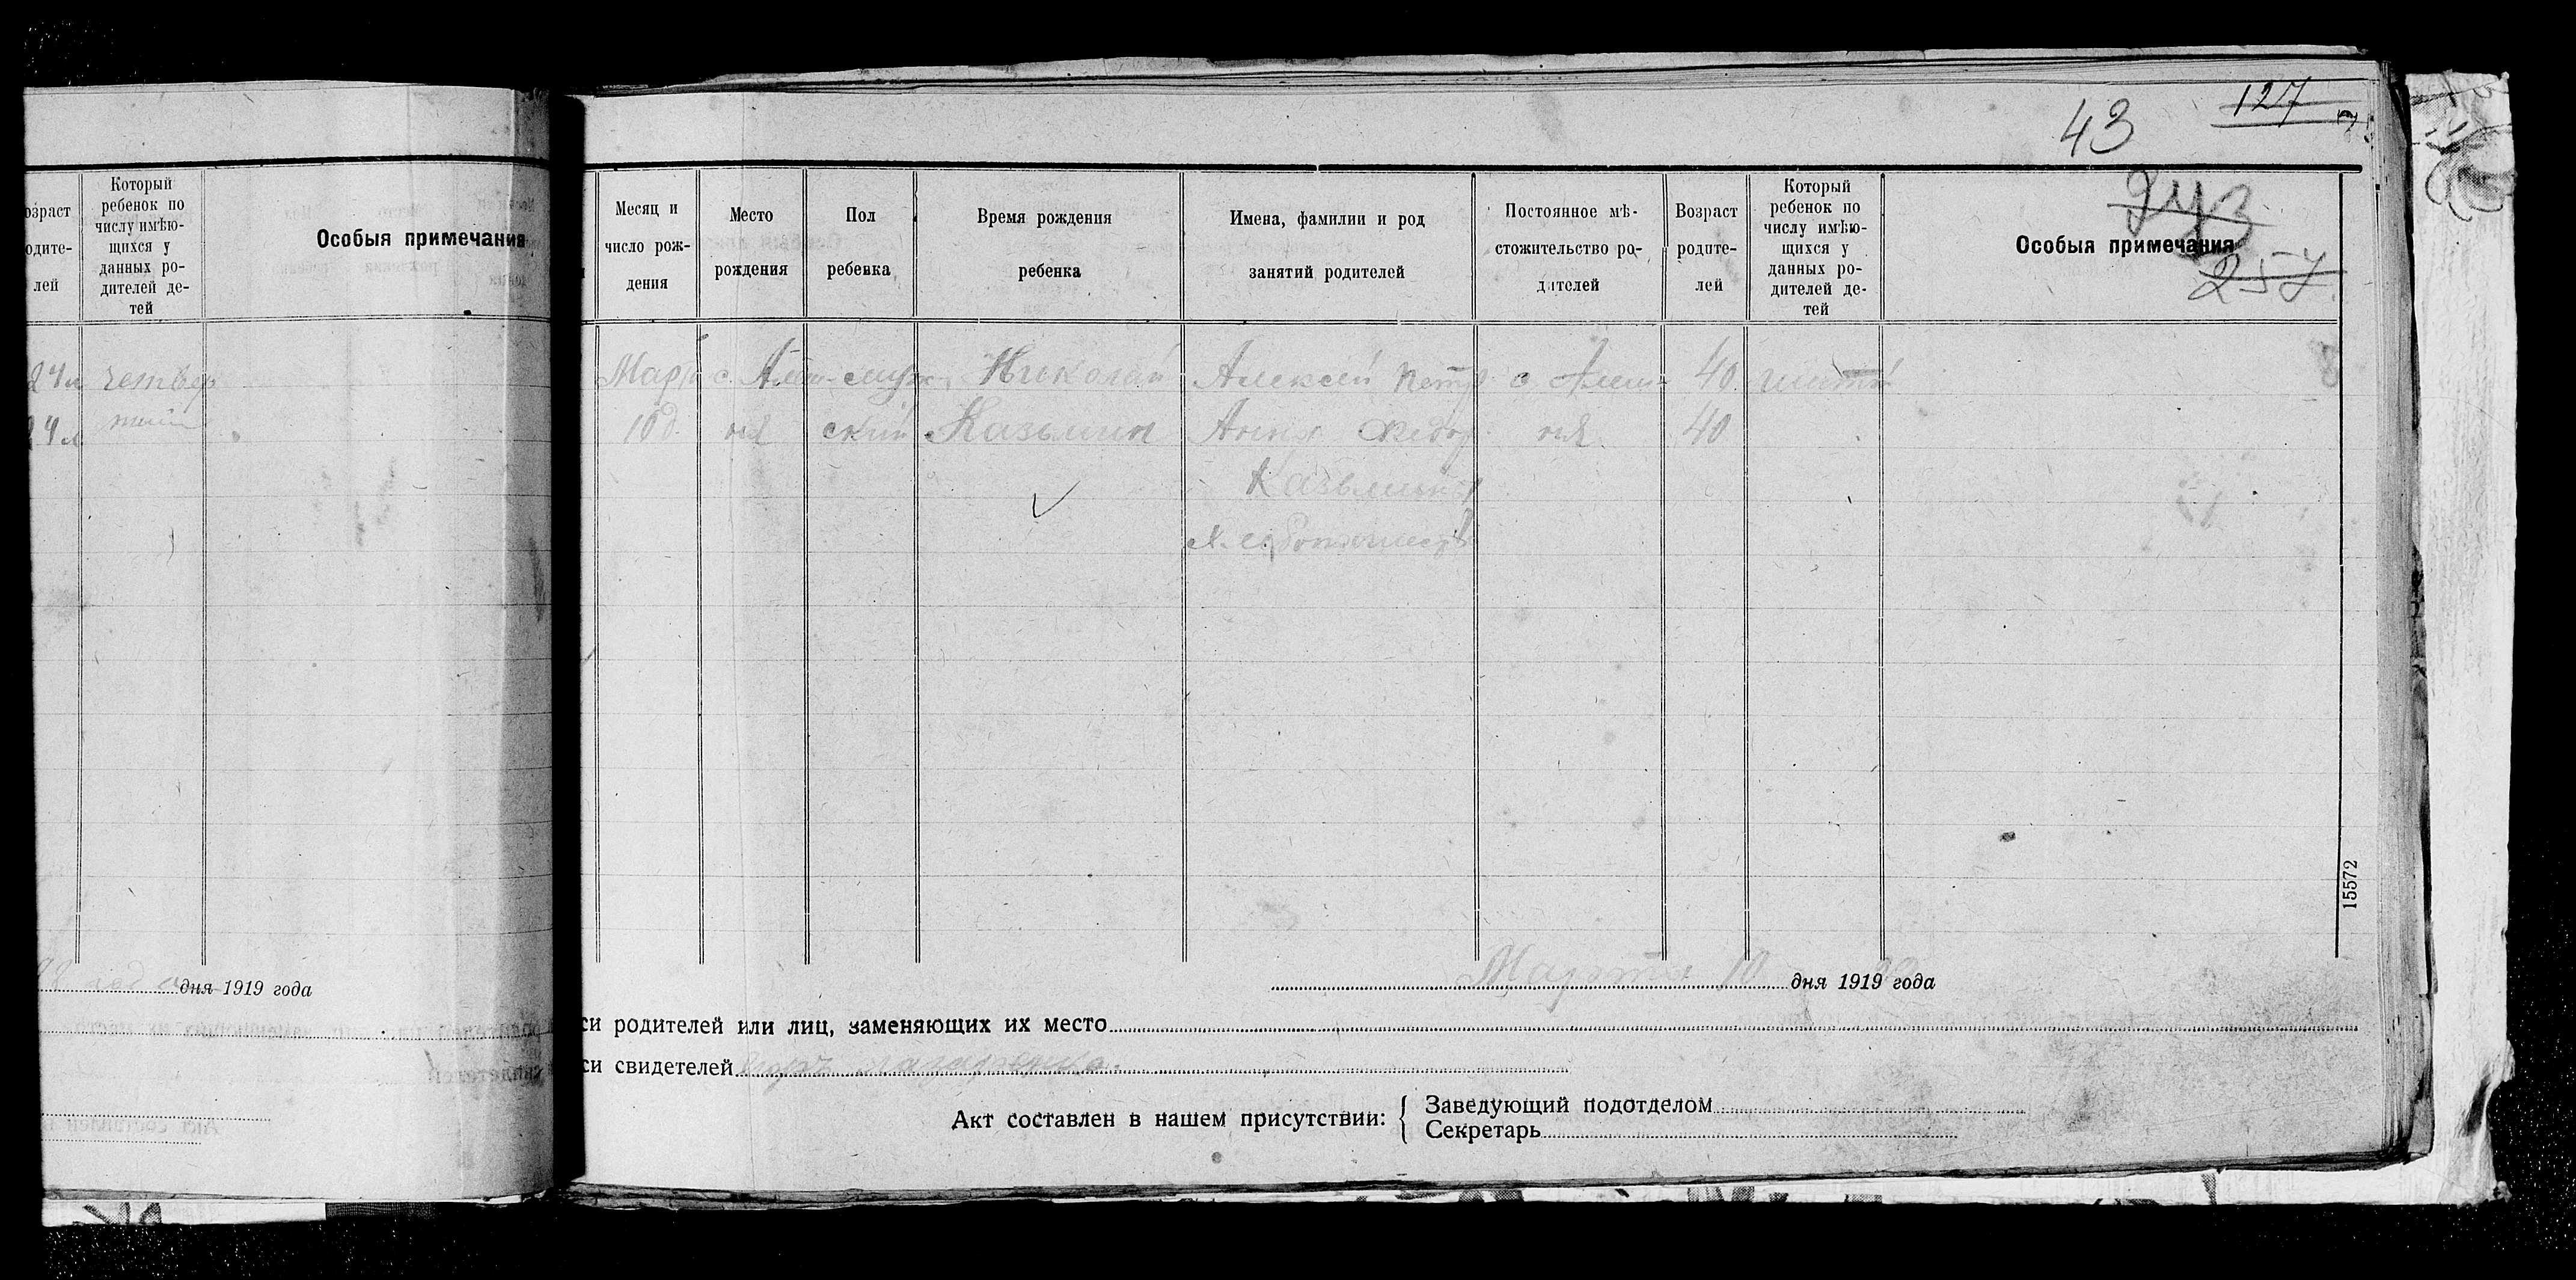 43
127
243
257
озраст
одите-
лей
Который
ребенок по
числу имѣю-
щихся у
данных ро-
дителей де-
тей
Особыя примечания
24 л
четвер
24 л
тый
дня 1919 года
Месяц и
число рож-
дения
Место
рождения
Пол
ребенка
Время рождения
ребенка
Имена, фамилии и род
занятий родителей
Постоянное мѣ-
стожительство ро-
дителей
Возраст
родите-
лей
Который
ребенок по
числу имѣю-
щихся у
данных ро-
дителей де-
тей
Особыя примечания
Март с. муж Николай Алексей Петр с. 40
10 ский Казьмин Анна Федор 40
Казьмины
15572
Марта 10 дня 1919 года
си родителей или лиц, заменяющих их место
си свидетелей
Акт составлен в нашем присутствии:
Заведующий подотделом
Секретарь